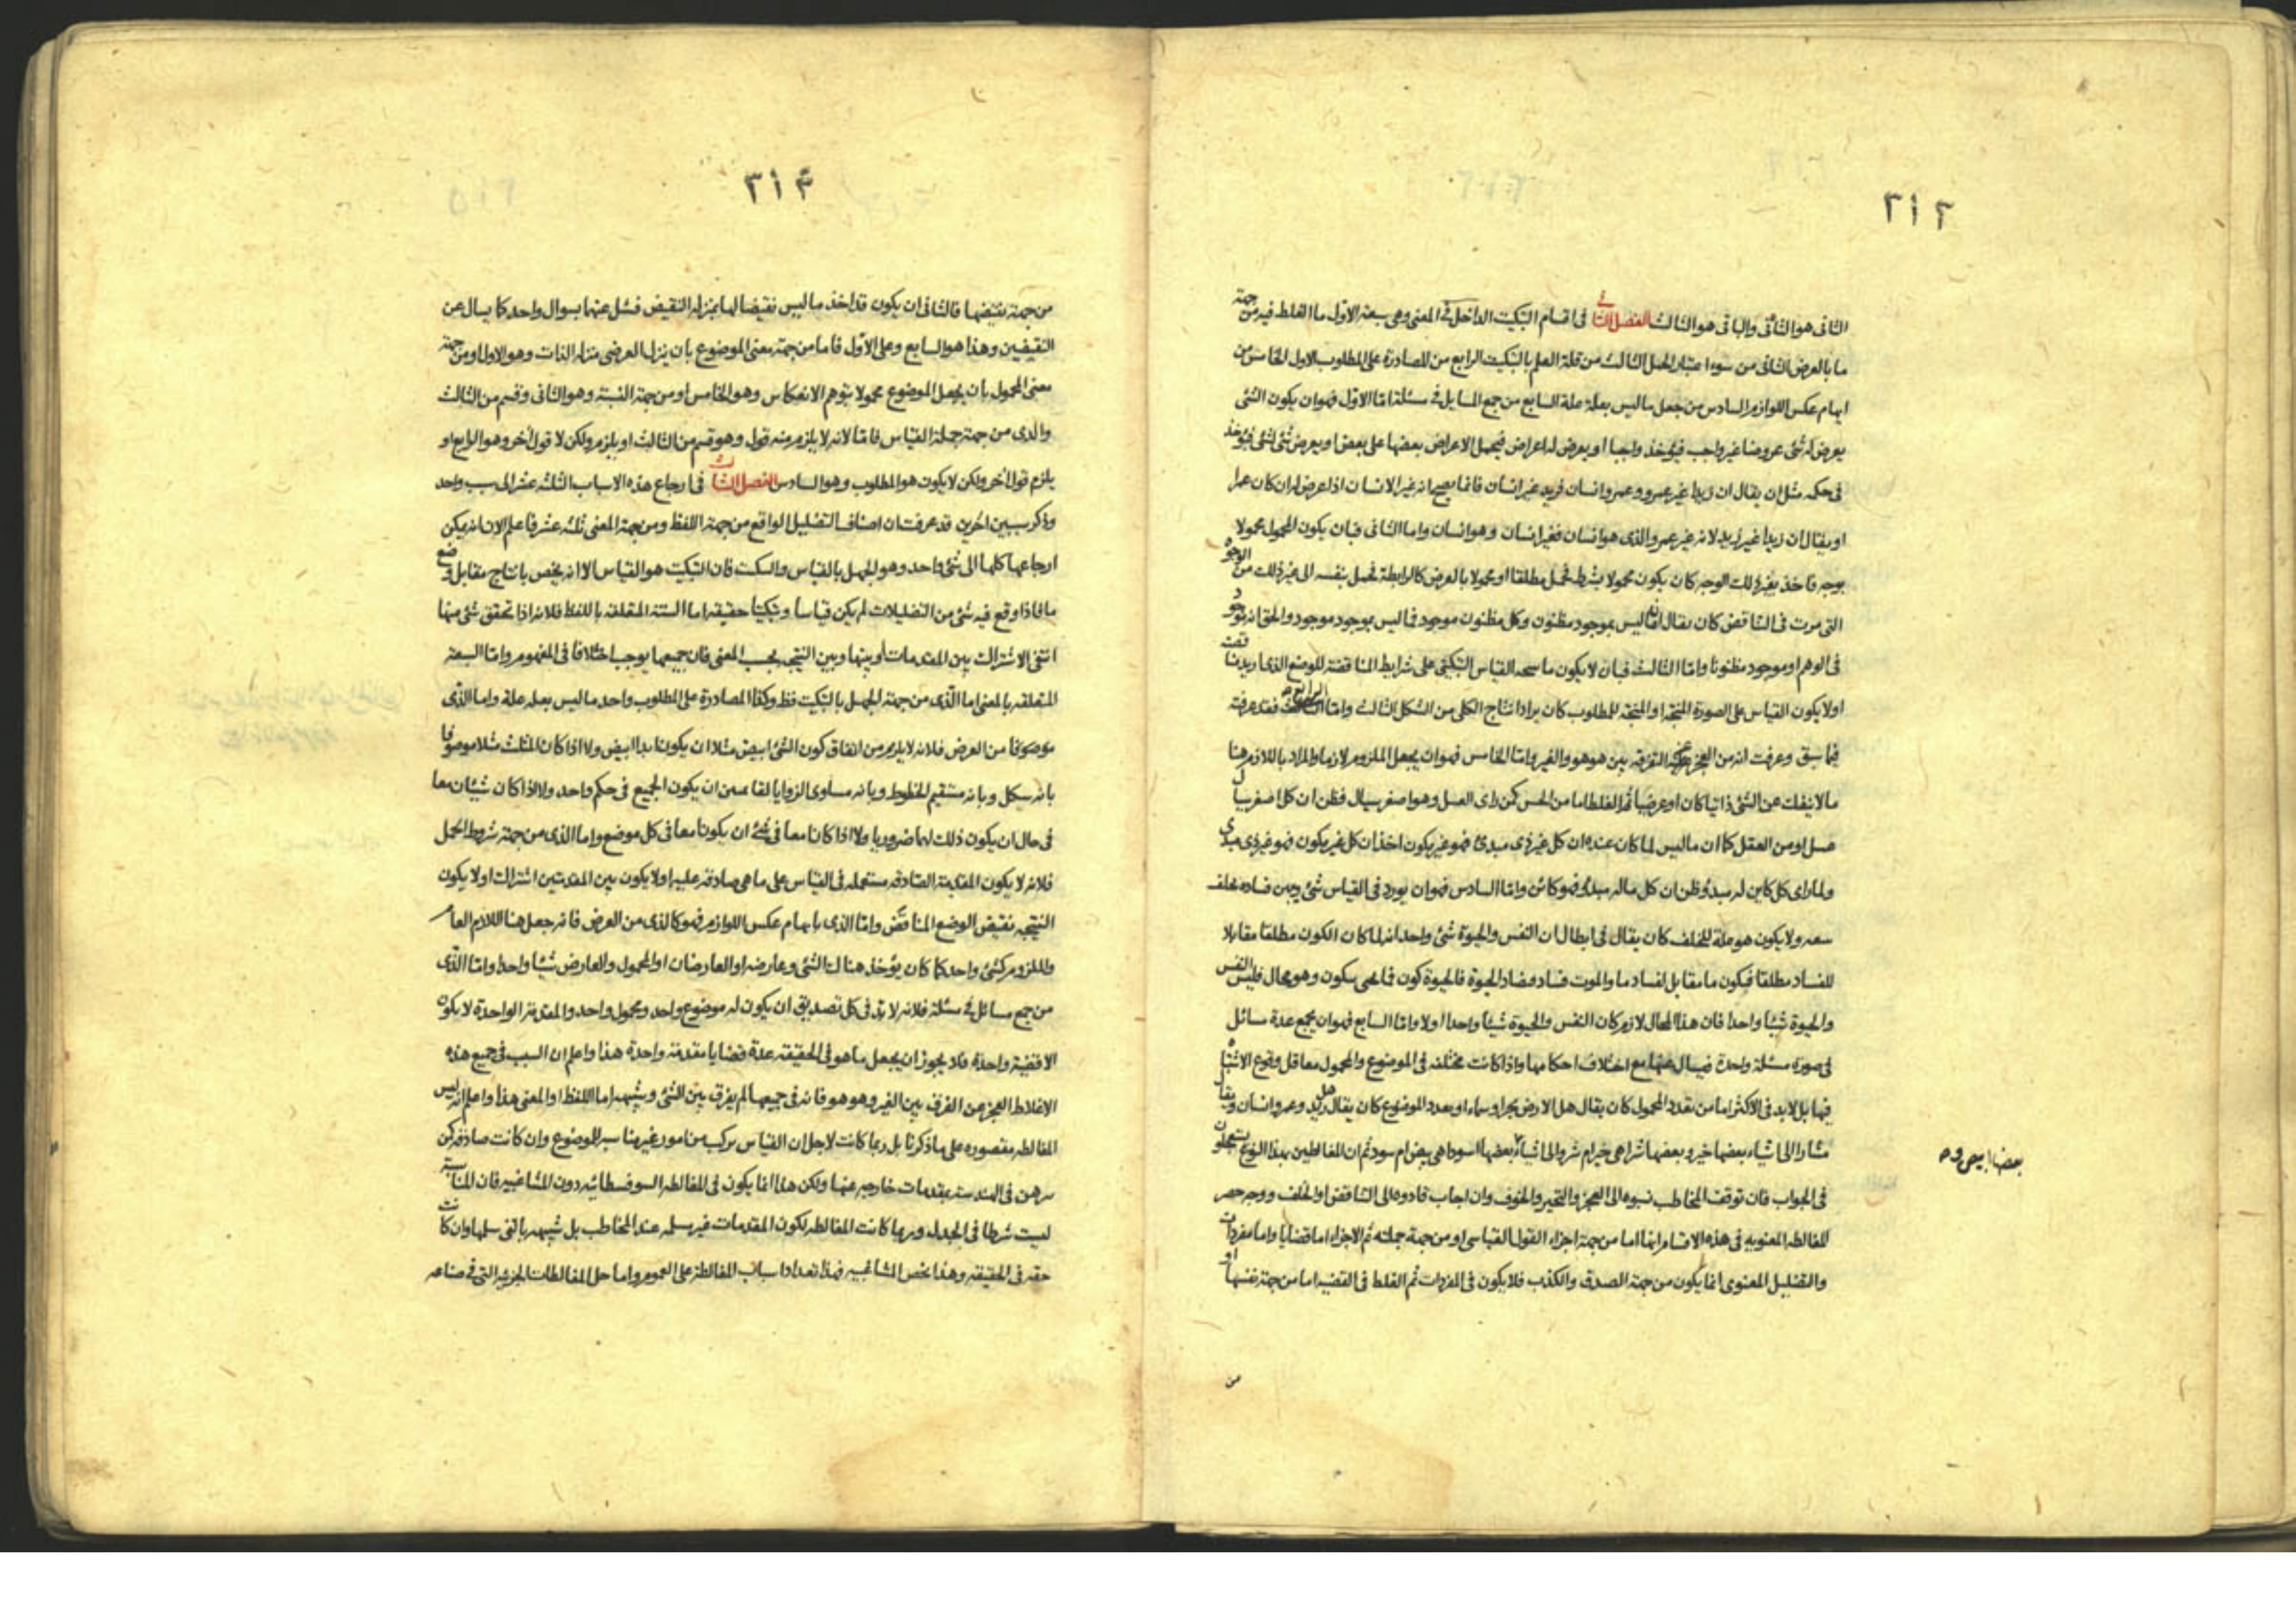 ٣١٣
الثانى هو الثانى والباقى هو الثالث الفصل الثانى فى اقسام التبكيت الداخل فى المعنى وهى سبعة الاول ما الغلط فيه من جهة
ما بالعرض الثانى من سوء اعتبار الحمل الثالث من قلة العلم بالتبكيت الرابع من المصادرة على المطلوب الاول الخامس من
ايهام عكس اللوازم السادس من جعل ما ليس بعلة علة السابع من جمع المسايل فى مسئلة اما الاول فهو ان يكون الشئ
يعرض له شئ عروضا غير واجب فيؤخذ واجبا او يعرض له اعراض فيحمل الاعراض بعضها على بعض او يعرض شئ لشئ فيؤخذ
فى حكمه مثل ان يقال ان زيدا غير عمرو وعمرو انسان فزيد غير انسان فانما يصح انه غير الانسان اذا عرض له ان كان عمرا
او يقال ان زيدا غير زيد لانه غير عمرو والذى هو انسان فغير انسان وهو انسان واما الثانى فبان يكون المحمول محمولا
بوجه فاخذ بغير ذلك الوجه كان يكون محمولا بشرط فحمل مطلقا او محمولا بالعرض كالرابطة فحمل بنفسه الى غير ذلك من الوجوه
التى مرت فى التناقض كان يقال ان ما ليس بموجود مظنون وكل مظنون موجود فما ليس بموجود موجود والحق انه موجود
فى الوهم او موجود مظنونا واما الثالث فبان لا يكون ما القياس التبكيتى على شرايط المناقضة للوضع الذى اريد مناقضته
اولا يكون القياس على الصورة المنتجة او المنتجة للمطلوب كان يراد انتاج الكلى من الشكل الثالث واما الرابع فقد عرفته
فيما سبق وعرفت انه من العجز عن التفرقة بين هو هو والغير واما الخامس فهو ان يجعل الملزوم لازما والمراد باللازم هنا
ما لا ينفك عن الشئ ذاتيا كان او عرضيا ثم الغلط اما من الحس كمن راى العسل وهو اصفر سيال فظن ان كل اصفر سيال
عسل او من العقل كما ان ما ليس لما كان عنده ان كل غير ذى مبدئ فهو غير يكون اخذ ان كل غير يكون فهو غير ذى مبدئ
ولما راى كل كاين له مبدؤ ظن ان كل ماله مبدؤ فهو كائن واما السادس فهو ان يورد فى القياس شئ ويبن فساده بخلف
ولا يكون هو علة للخلف كان يقال فى ابطال ان النفس والحيوة شئ واحد انه لما كان الكون مطلقا مقابلا
للفساد مطلقا فيكون ما مقابل لفساد ما والموت فساد ومضاد الحيوة فالحيوة كون فما يحيى يكون وهو محال فليس النفس
والحيوة شيئا واحدا فان هذا المحال لازم كان النفس والحيوة شيئا واحدا اولا واما السابع فهو ان يجمع عدة مسائل
فى صورة مسئلة واحدة فيسال عنها مع اختلاف احكامها واذا كانت مختلفه فى الموضوع والمحمول معا قل وقوع الاشتباه
فيها بل لابد فى الاكثر اما من تعدد المحمول كان يقال هل الارض بحر او سماء او بعدد الموضوع كان يقال هل زيد وعمرو انسان ويقال
مشارا الى اشياء بعضها خير وبعضها شر اهى خير ام شر والى اشياء بعضها اسود اهى بيض ام سود ثم ان المغالطين بهذا النوع يستعملون
فى الجواب فان توقف المخاطب نسبوه الى العجز والتحير والخوف وان اجاب قادوه الى التناقض او الخلف ووجه حصر
المغالطه المعنويه فى هذه الاقسام انها اما من جهة اجزاء القول القياسى او من جهة جملته ثم الاجزاء اما قضايا واما مفردات
والتضليل المعنوى انما يكون من جهة الصدق والكذب فلا يكون فى المفردات ثم الغلط فى القضيه اما من جهة نفسها او
بعضها ابيض و
من
٣١٤
من جهة نقيضها فالثانى ان يكون قد اخذ ما ليس نقيضا لها بمنزله النقيض فسئل عنها بسوال واحد كما يسال عن
النقيضين وهذا هو السابع وعلى الاول فاما من جهة معنى الموضوع بان ينزل العرضى منزله الذات وهو الاول او من جهة
معنى المحمول بان يجعل الموضوع محمولا بتوهم الانعكاس وهو الخامس او من جهة النسبة وهو الثانى وقسم من الثالث
والذى من جهة جملة القياس فاما لانه لا يلزم منه قول وهو قسم من الثالث او يلزم ولكن لا قول أخر وهو الرابع او
يلزم قول أخر ولكن لا يكون هو المطلوب وهو السادس الفصل الثالث فى ارجاع هذه الاسباب الثلثه عشر الى سبب واحد
وذكر سببين اخرين قد عرفت ان اصناف التضليل الواقع من جهة اللفظ ومن جهة المعنى ثلثه عشر فاعلم الان انه يمكن
ارجاعها كلها الى شئ واحد وهو الجهل بالقياس والتبكيت فان التبكيت هو القياس الا انه يخص بانتاج مقابل وضع
ما فاذا وقع فيه شئ من التضليلات لم يكن قياسا وتبكيتا حقيقه اما الستة المتعلقه باللفظ فلانه اذا تحقق شئ منها
انتفى الاشتراك بين المقدمات او بينها وبين النتيجه بحسب المعنى فان جميعها يوجب اختلافا فى المفهوم واما السبعة
المتعلقه بالمعنى اما الذى من جهة الجهل بالتبكيت فظ وكذا المصادرة على المطلوب واحد ما ليس بعله علة واما الذى
من العرض فلانه لا يلزم من اتفاق كون الشئ ابيض مثلا ان يكون ابدا ابيض ولا اذا كان المثلث مثلا موصوفا
بانه سكل وبانه مستقيم الخطوط وبانه مساوى الزوايا لقا ان يكون الجميع فى حكم واحد ولا اذا كان شيئان معا
فى حال ان يكون ذلك لهما ضروريا ولا اذا كانا معا فى شئ ان يكونا معا فى كل موضع واما الذى من جهة شروط الحمل
فلانه لا يكون المقدمة الصادقه مستعمله فى القياس على ما هى صادقه عليه اولا يكون بين المقدمتين اشتراك اولا يكون
النتيجه نقيض الوضع المناقض واما الذى بايهام عكس اللوازم فهو كالذى من العرض فانه جعل هنا اللازم العام
والملزوم كشئ واحد كما كان يؤخذ هناك الشئ وعارضه او العارضان او المحمول والعارض شيئا واحدا واما الذى
من جمع مسائل فى مسئلة فلانه لابد فى كل تصديق ان يكون له موضوع واحد ومحمول واحد والمقدمة الواحدة لا يكون
الا قضية واحدة فلا يجوز ان يجعل ما هو فى الحقيقه عدة قضايا مقدمة واحدة هذا واعلم ان السبب فى جميع هذه
الاغلاط العجز عن الفرق بين الغير وهو هو فانه فى جميعها لم يفرق بين الشئ وشبهه اما اللفظ او المعنى هذا واعلم انه ليس
المغالطه مقصوره على ما ذكرنا بل ربما كانت لاجل ان القياس تركب من امور غير مناسبه للموضوع وان كانت صادقه كمن
يبرهن فى الهندسة بمقدمات خارجه عنها ولكن هذا انما يكون فى المغالطه السوفسطائيه دون المشاغبيه فان المناسبة
ليست شرطا فى الجدل وربما كانت المغالطه لكون المقدمات غير مسلمه عند المخاطب بل شبيهه بالتى سلمها وان كانت
حقه فى الحقيقه وهذا يخص المشاغبيه فهذا تعداد اسباب المغالطة على العموم واما حل المغالطات الجزئيه التى فى صناعه